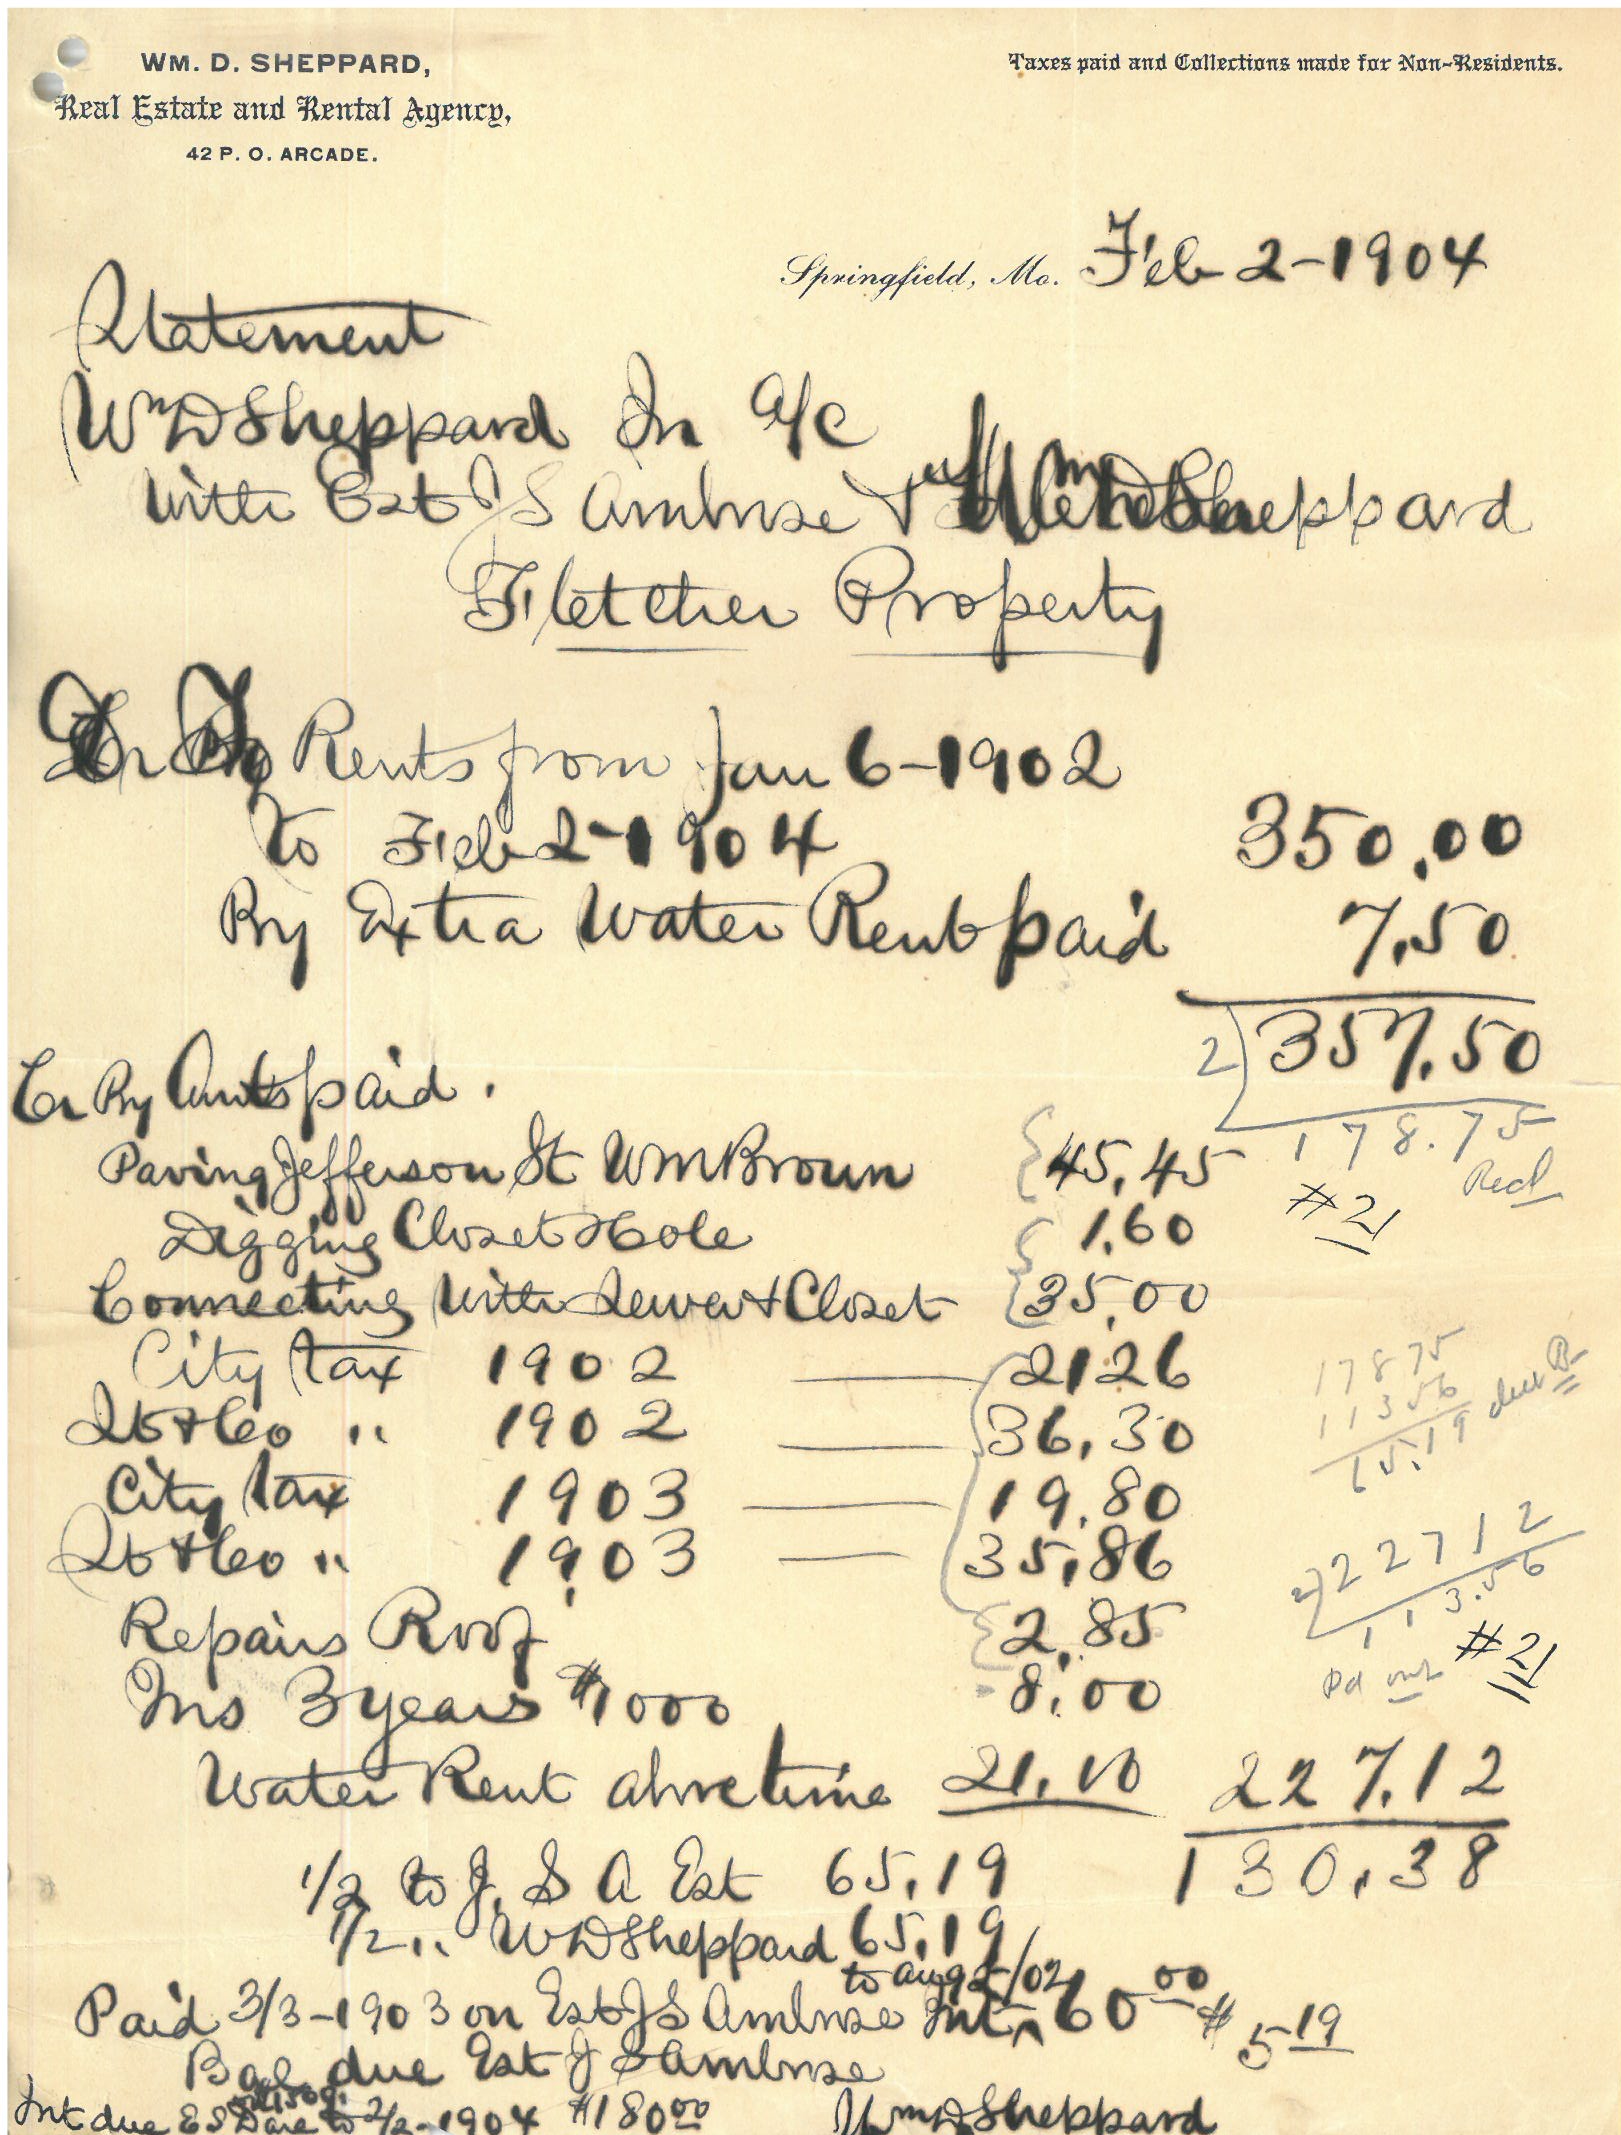 WM. D. SHEPPARD,
Real Estate and Rental Agency,
42 P. O. ARCADE.
Taxes paid and Collections made for Non-Residents.
Springfield, Mo. Feb 2-1904
Statement
Wm D Sheppard In a/c
with Est J S Ambrose & Wm D Sheppard
Fletcher Property
Rents from Jan 6-1902
To Feb 2-1904 350.00
By Extra Water Rent paid 7.50
2) 357.50
178.75
Recd
#21
Cr By Amts paid.
Paving Jefferson St WM Broun 45.45
Digging Closet Hole 1.60
Connecting With Sewer & Closet 35.00
City tax 1902 — 21.26
St & Co " 1902 — 36.30
City tax 1903 — 19.80
St & Co " 1903 — 35.86
Repairs Roof 2.85
Ins 3 years $1000 8.00
Water Rent above time 21.10 227.12
130.38
17875
11356
65.19 due
2) 22712
113.56
Pd out #21
1/2 to J. S A Est 65.19
1/2 " W D Sheppard 65.19
to Aug 25/02
Paid 3/3-1903 on Est J S Ambrose Int ^ 60 00
Bal due Est J S Ambrose $5 19
Int due E S Dare to 2/2-1904 $180 00
Wm D Sheppard